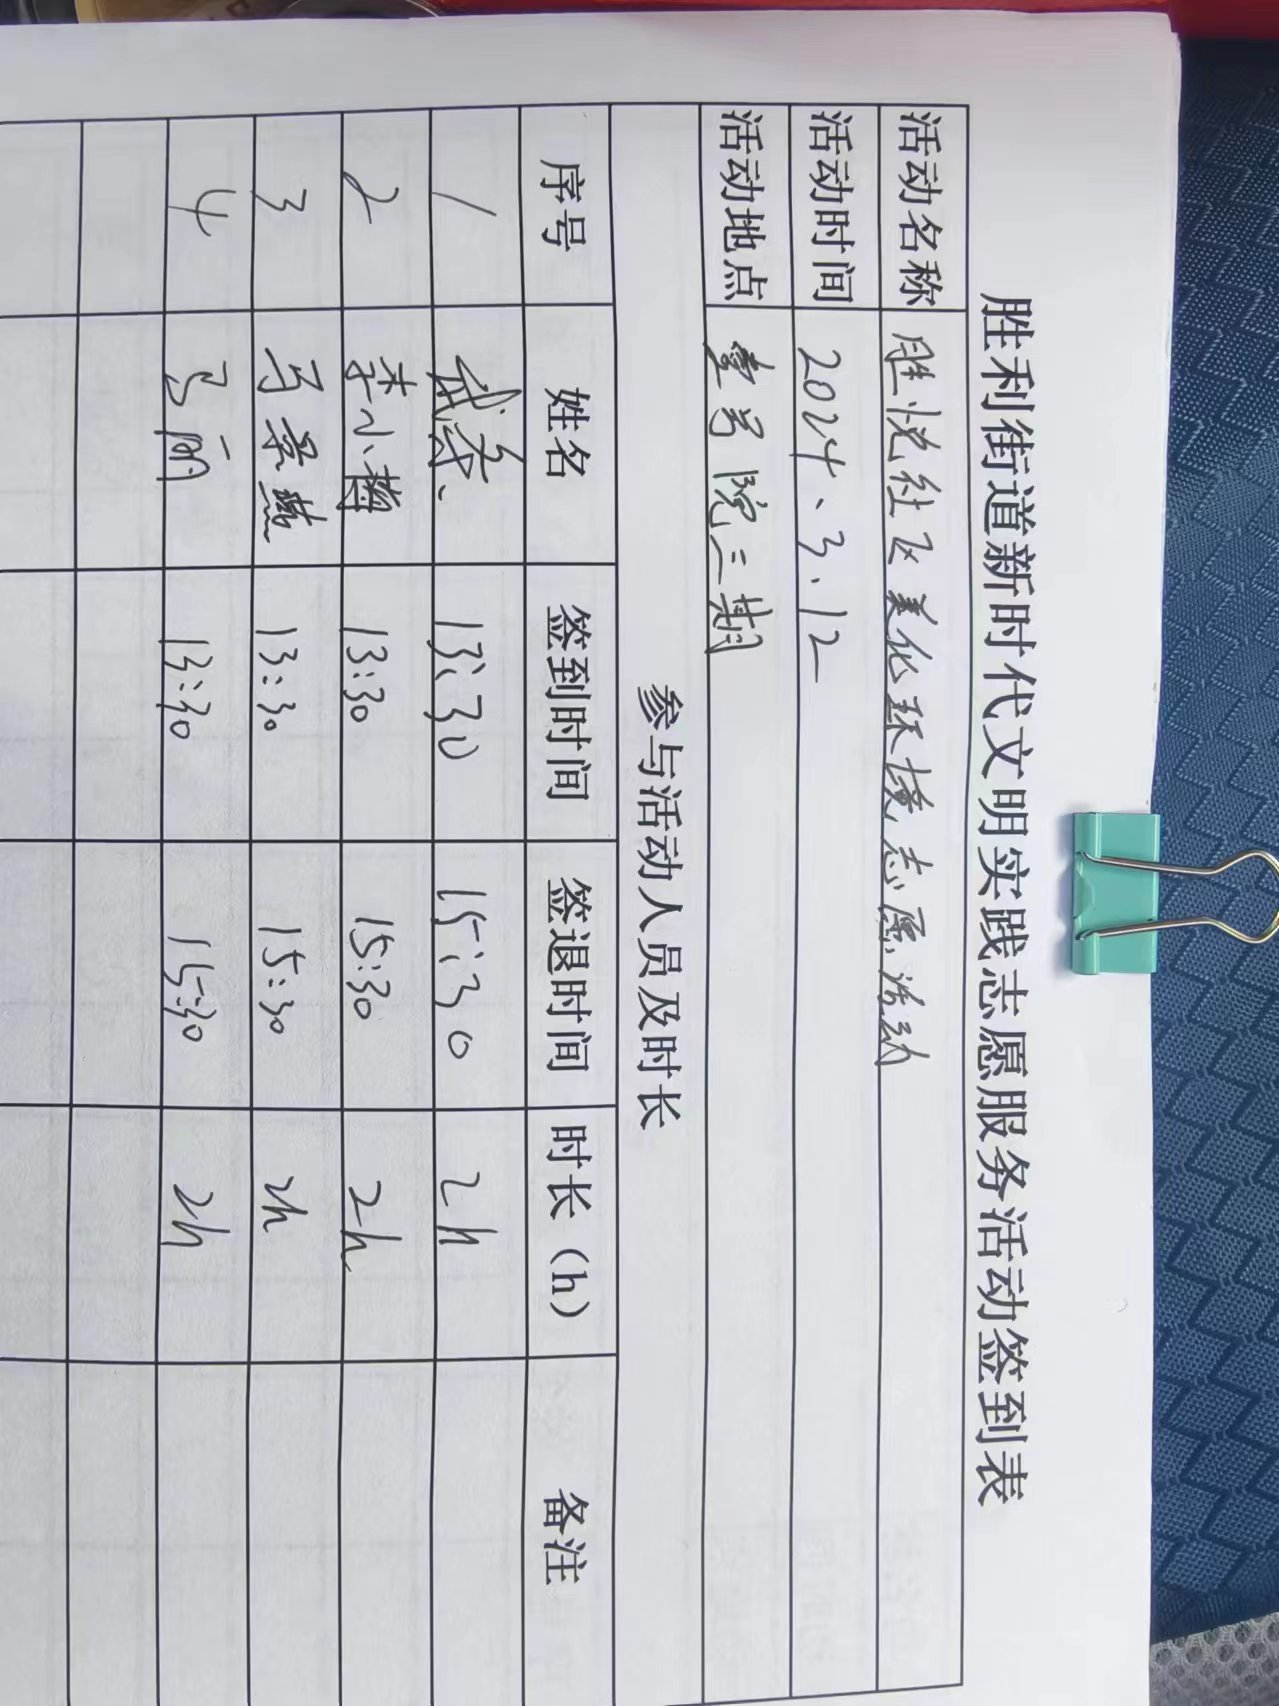 胜利街道新时代文明实践志愿服务活动签到表
活动名称 胜悦社区美化环境志愿活动
活动时间 2024、3.12
活动地点 壹号院三期
参与活动人员及时长
序号 姓名 签到时间 签退时间 时长（h） 备注
1 13:30 15:30 2h
2 李小梅 13:30 15:30 2h
3 13:30 15:30 2h
4 马丽 13:30 15:30 2h